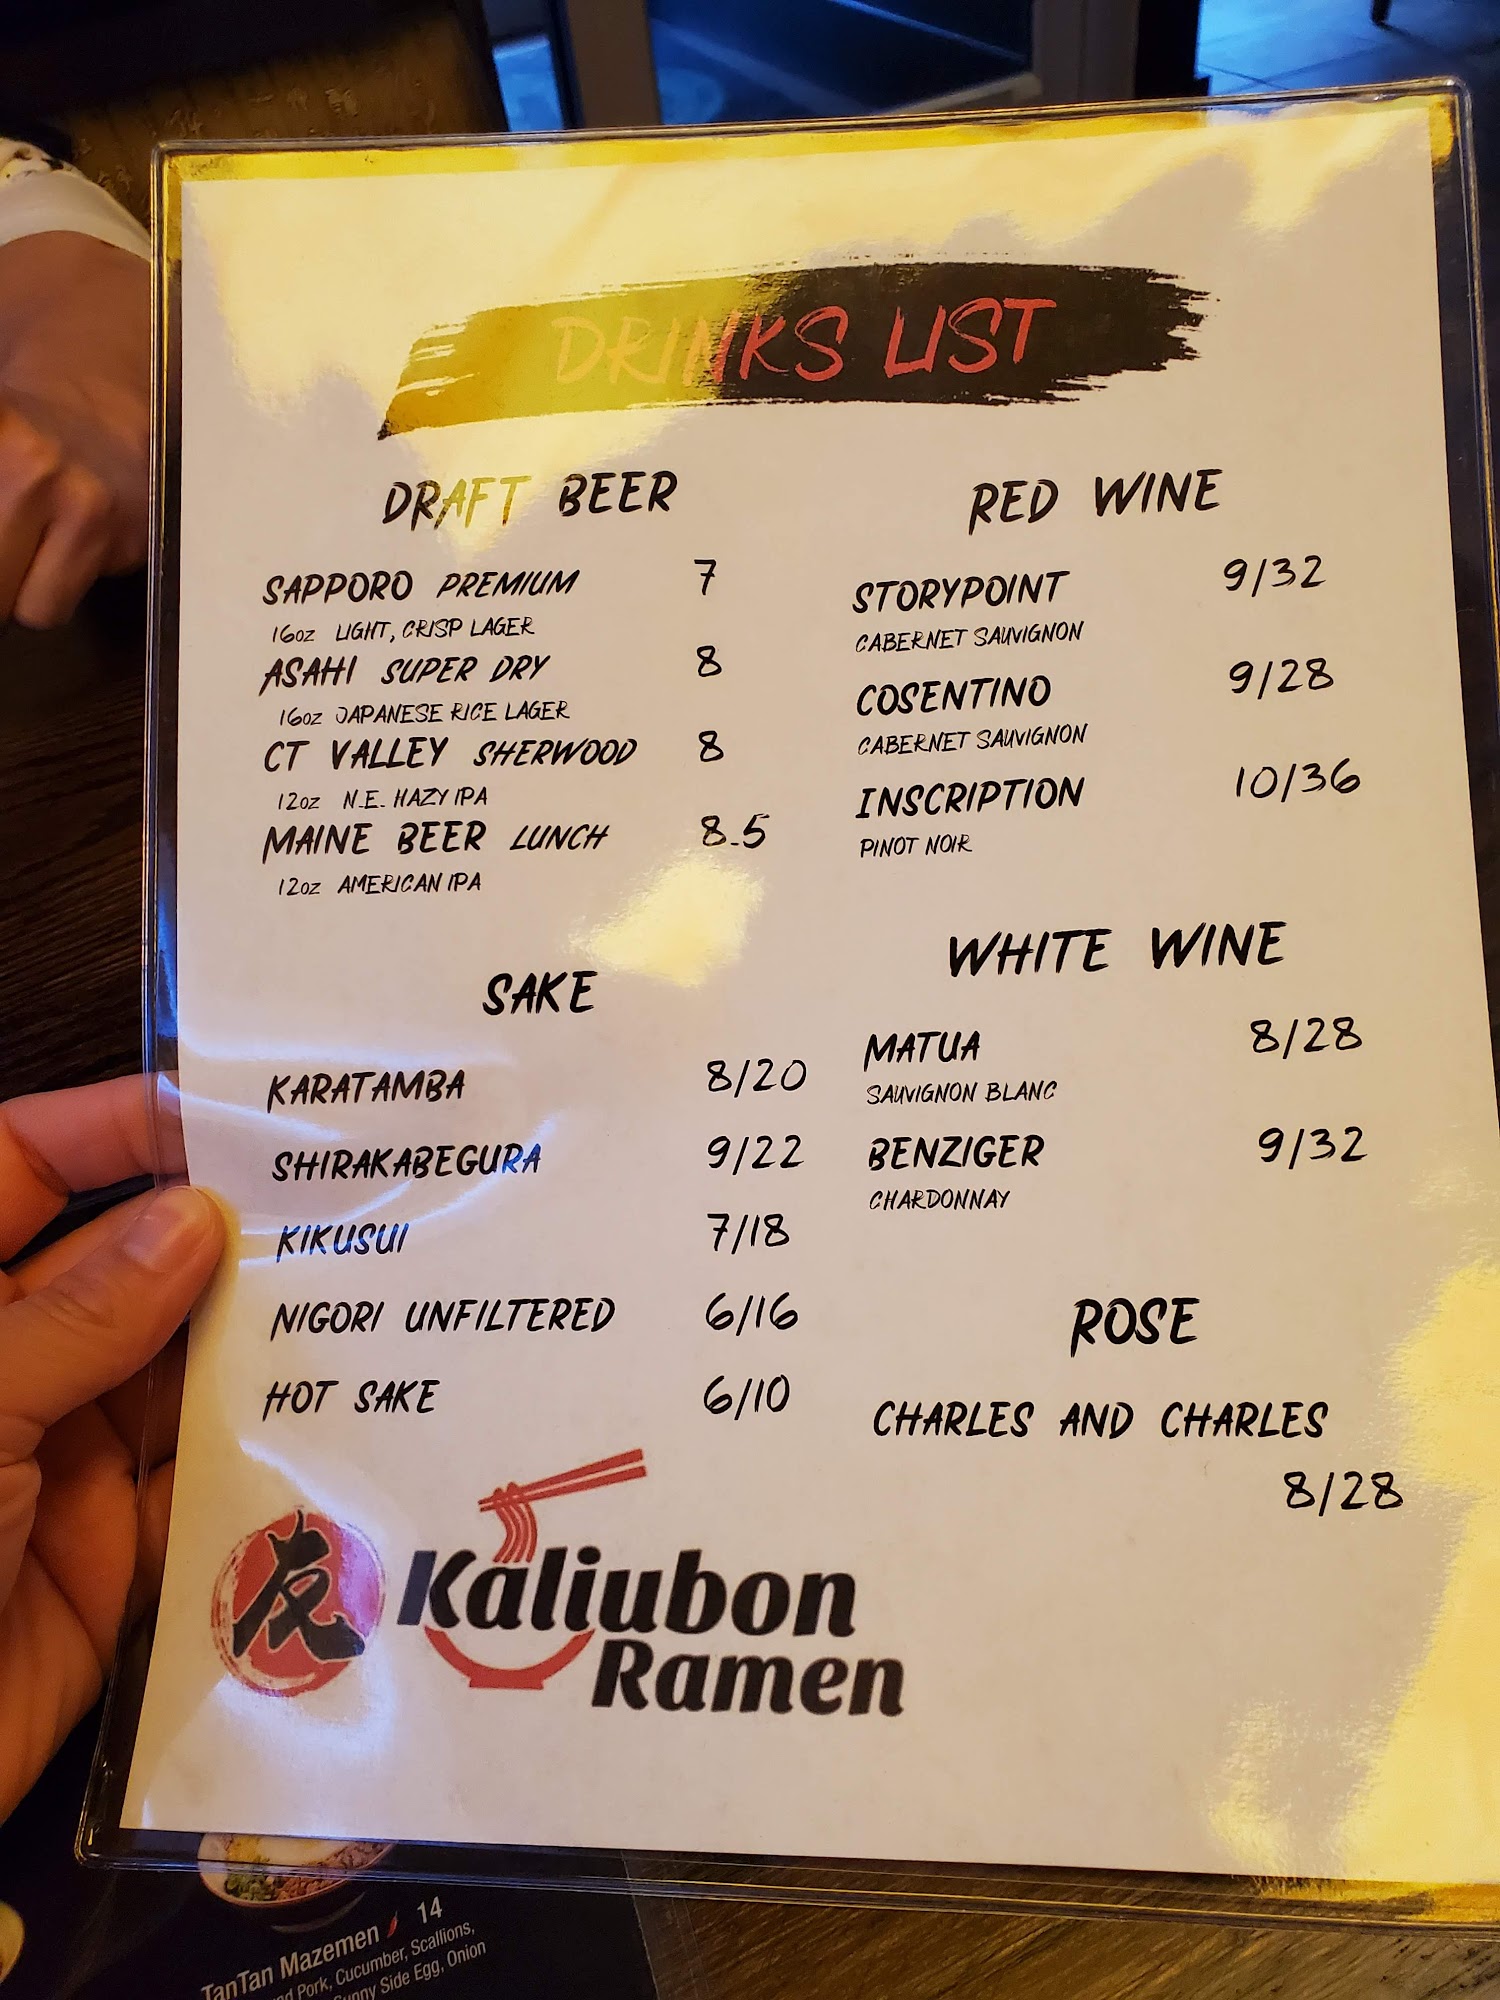 DRINKS LIST
DRAFT BEER
SAPPORO PREMIUM 7
16oz LIGHT, CRISP LAGER
ASAHI SUPER DRY 8
16oz JAPANESE RICE LAGER
CT VALLEY SHERWOOD 8
12oz N.E. HAZY IPA
MAINE BEER LUNCH 8.5
12oz AMERICAN IPA
SAKE
KARATAMBA 8/20
SHIRAKABEGURA 9/22
KIKUSUI 7/18
NIGORI UNFILTERED 6/16
HOT SAKE 6/10
RED WINE
STORYPOINT 9/32
CABERNET SAUVIGNON
COSENTINO 9/28
CABERNET SAUVIGNON
INSCRIPTION 10/36
PINOT NOIR
WHITE WINE
MATUA 8/28
SAUVIGNON BLANC
BENZIGER 9/32
CHARDONNAY
ROSE
CHARLES AND CHARLES
8/28
友
Kaliubon
Ramen
TanTan Mazemen 14
Pork, Cucumber, Scallions,
Side Egg, Onion